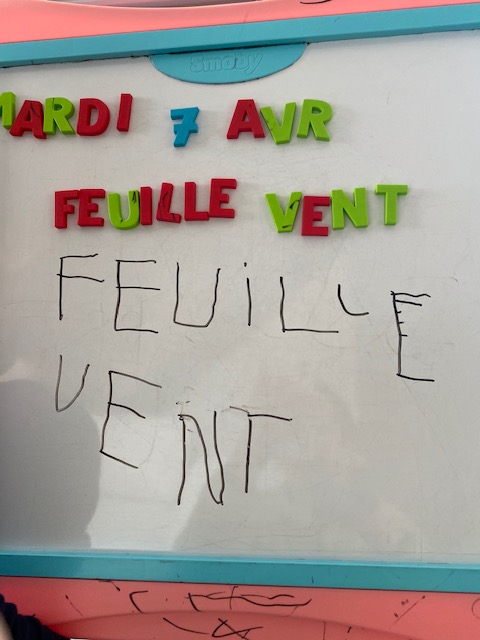 Smoby
MARDI 7 AVR
FEUILLE VENT
FEUiLLE
VENT